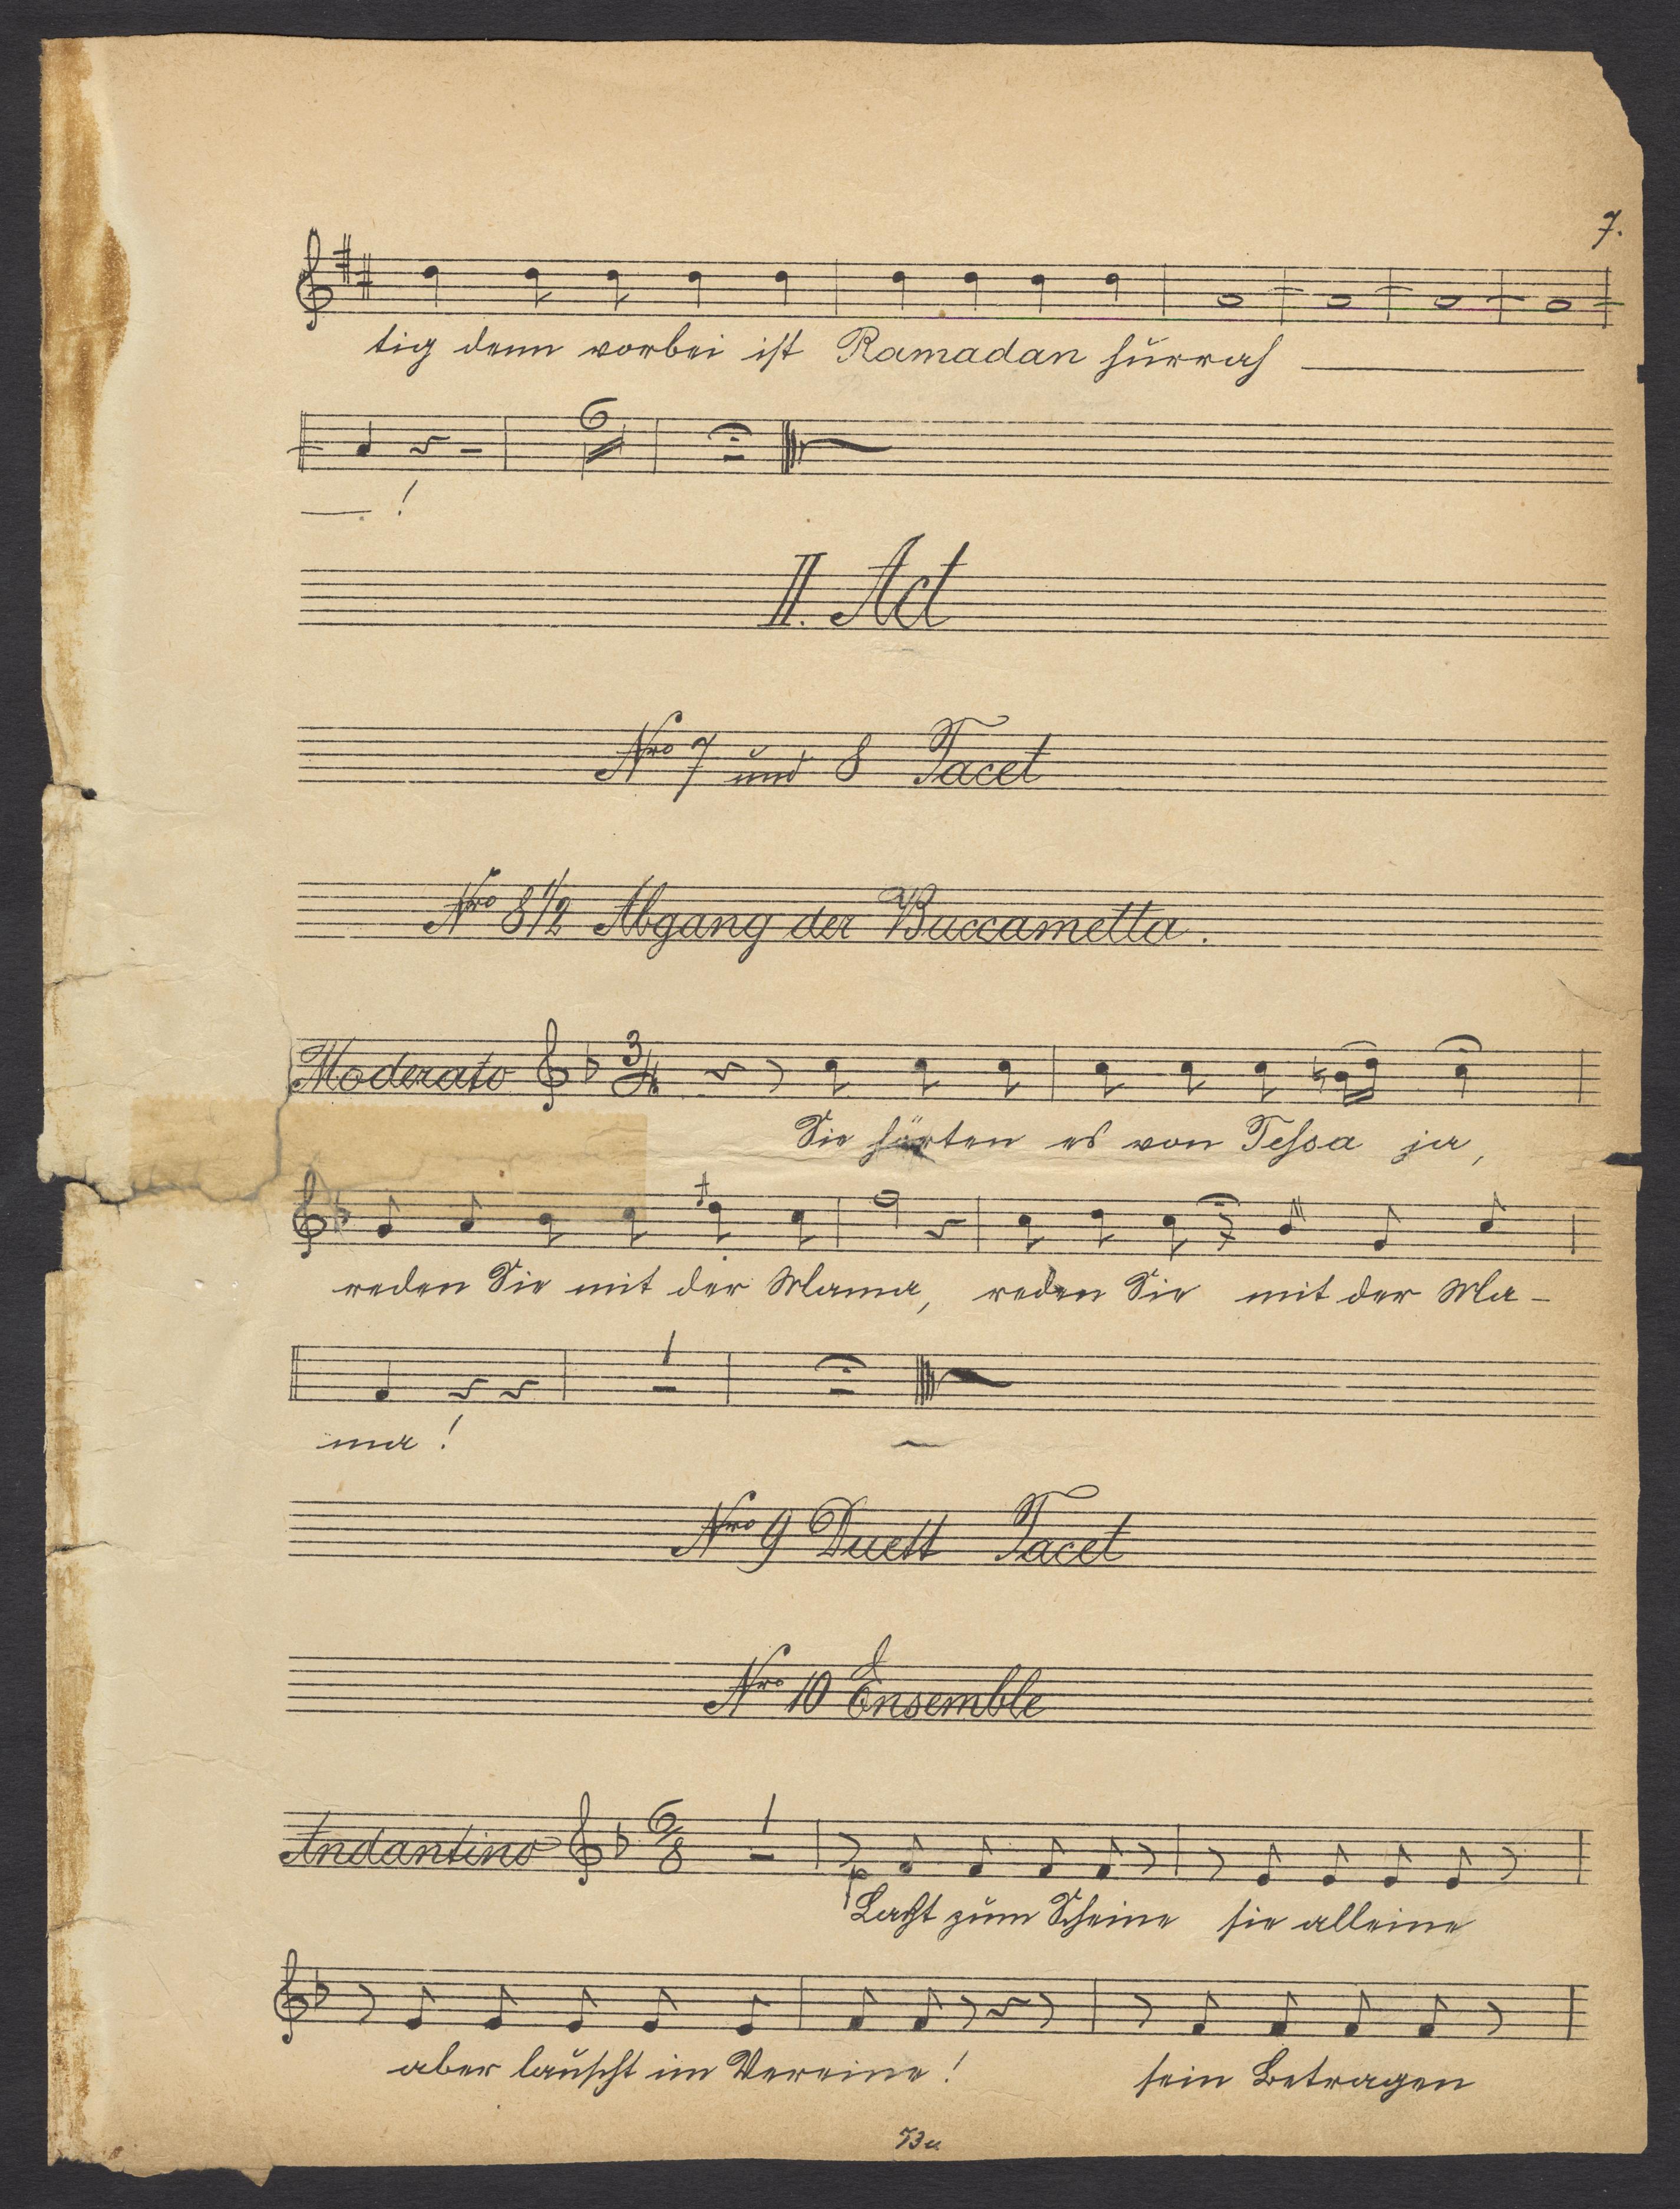 7.
tig denn vorbei ist Ramadan hurrah
6
!
II. Act
Nro 7 und 8 Tacet
Nro 8 1/2 Abgang der Buccametta.
Moderato 3/4
Sie hörten es von Tessa ja,
reden Sie mit der Mama, reden Sie mit der Ma-
1
ma!
Nro 9 Duett Tacet
Nro 10 Ensemble
Andantino 6/8 1
p
Laßt zum Scheine sie alleine
aber lauscht im Vereine! sein Betragen